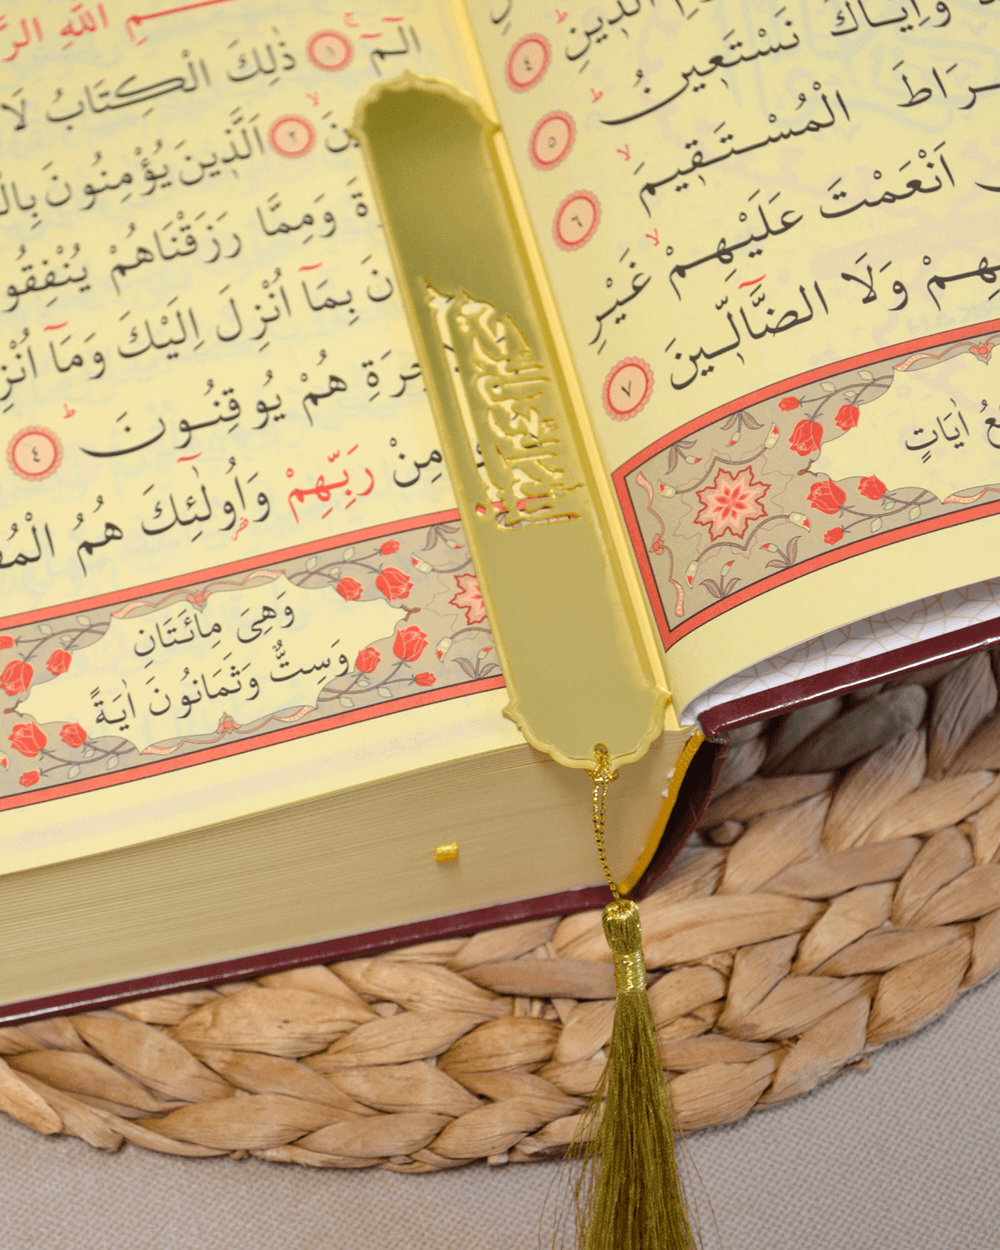 الدّينِ ٤
وَاِيَّاكَ نَسْتَعينُ ٥
ـرَاطَ الْمُسْتَقيمَ ٦
اَنْعَمْتَ عَلَيْهِمْ غَيْرِ
ـهِمْ وَلَا الضَّٓالّينَ ٧
ـعُ اٰيَاتٍ
ـمِ اللّٰهِ الرَّ
الٓمٓ ١ ذٰلِكَ الْكِتَابُ لَا
ـينَ ٢ اَلَّذينَ يُؤْمِنُونَ بِالْـ
ـةَ وَمِمَّا رَزَقْنَاهُمْ يُنْفِقُو
ـنَ بِمَٓا اُنْزِلَ اِلَيْكَ وَمَٓا اُنْزِ
ـخِرَةِ هُمْ يُوقِنُونَ ٤
مِنْ رَبِّهِمْ وَاُو۬لٰٓئِكَ هُمُ الْمُفْـ
وَهِىَ مِائَتَانِ
وَسِتٌّ وَثَمَانُونَ اٰيَةً
بسم الله الرحمن الرحيم